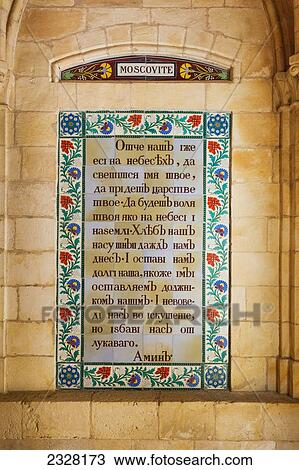 MOSCOVITE
Отче нашъ iже
есi на небесѣхъ, да
святится iмя твое,
да прiдетъ царствiе
твое · Да будетъ воля
твоя яко на небесѣ i
на земли · Хлѣбъ нашъ
насущный даждь намъ
днесь · I оставi намъ
долгi нашя, якоже i мы
оставляем должнi-
комъ нашимъ · I не вове-
дi насъ во iскушенiе,
но iзбавi насъ от
лукаваго.
Аминь
Fotosearch
2328173 www.fotosearch.com